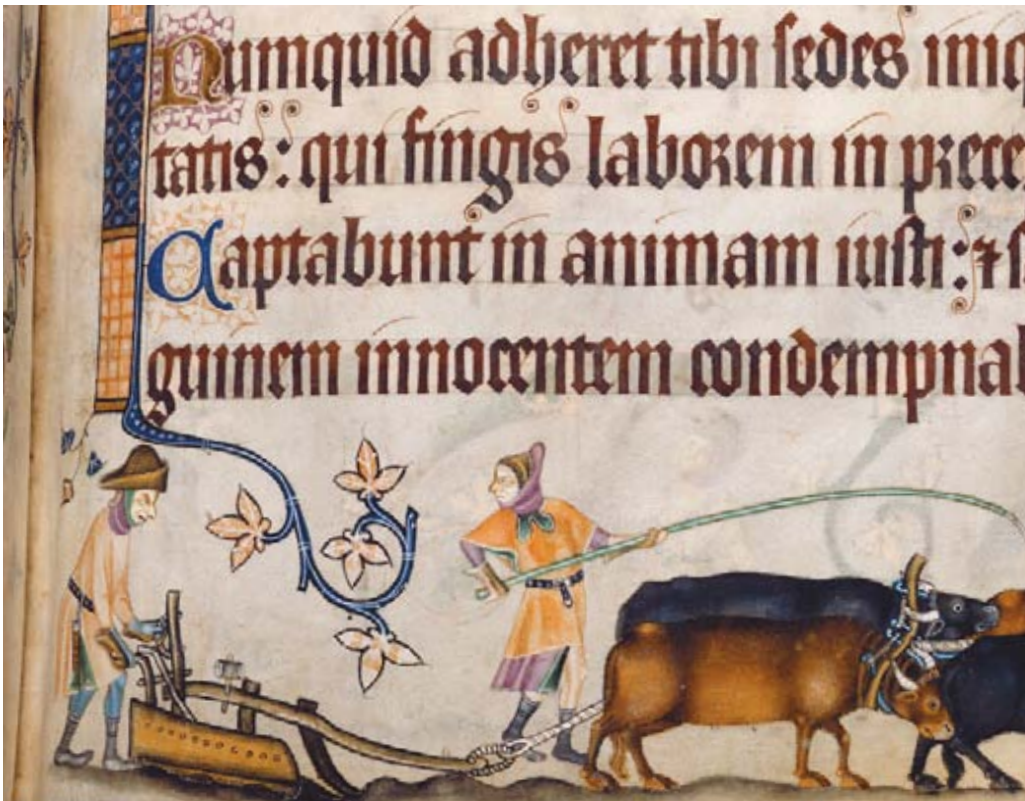 Numquid adheret tibi sedes iniq
tatis: qui fingis laborem in prece
Captabunt in animam iusti: ⁊ s
guinem innocentem condempnab